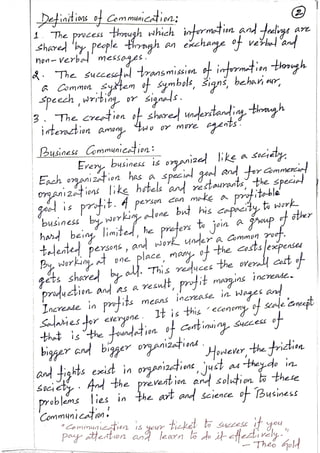 Definitions of Communication:
②
1. The process through which information and feelings are
shared by people through an exchange of verbal and
non-verbal messages.
2. The successful transmission of information through
a common system of symbols, signs, behaviour,
speech, writing or signals.
3. The creation of shared understanding through
interaction among two or more agents.
Business Communication:
Every business is organized like a society.
Each organization has a special goal and for commercial
organizations like hotels and restaurants, the special
goal is profit. A person can make a profitable
business by working alone but his capacity to work
hard being limited, he prefers to join a group of other
talented persons, and work under a common roof.
By working at one place, many of the costs/expenses
gets shared by all. This reduces the overall cost of
production and as a result, profit margins increase.
Increase in profits means increase in wages and
Salaries for everyone. It is this 'economy of scale' concept
that is the foundation of continuing success of
bigger and bigger organizations.
However, the friction
and fights exist in organizations, just as they do in
society. And the prevention and solution to these
problems lies in the art and science of Business
Communication!
"Communication is your ticket to success if you
pay attention and learn to do it effectively."
— Theo Gold